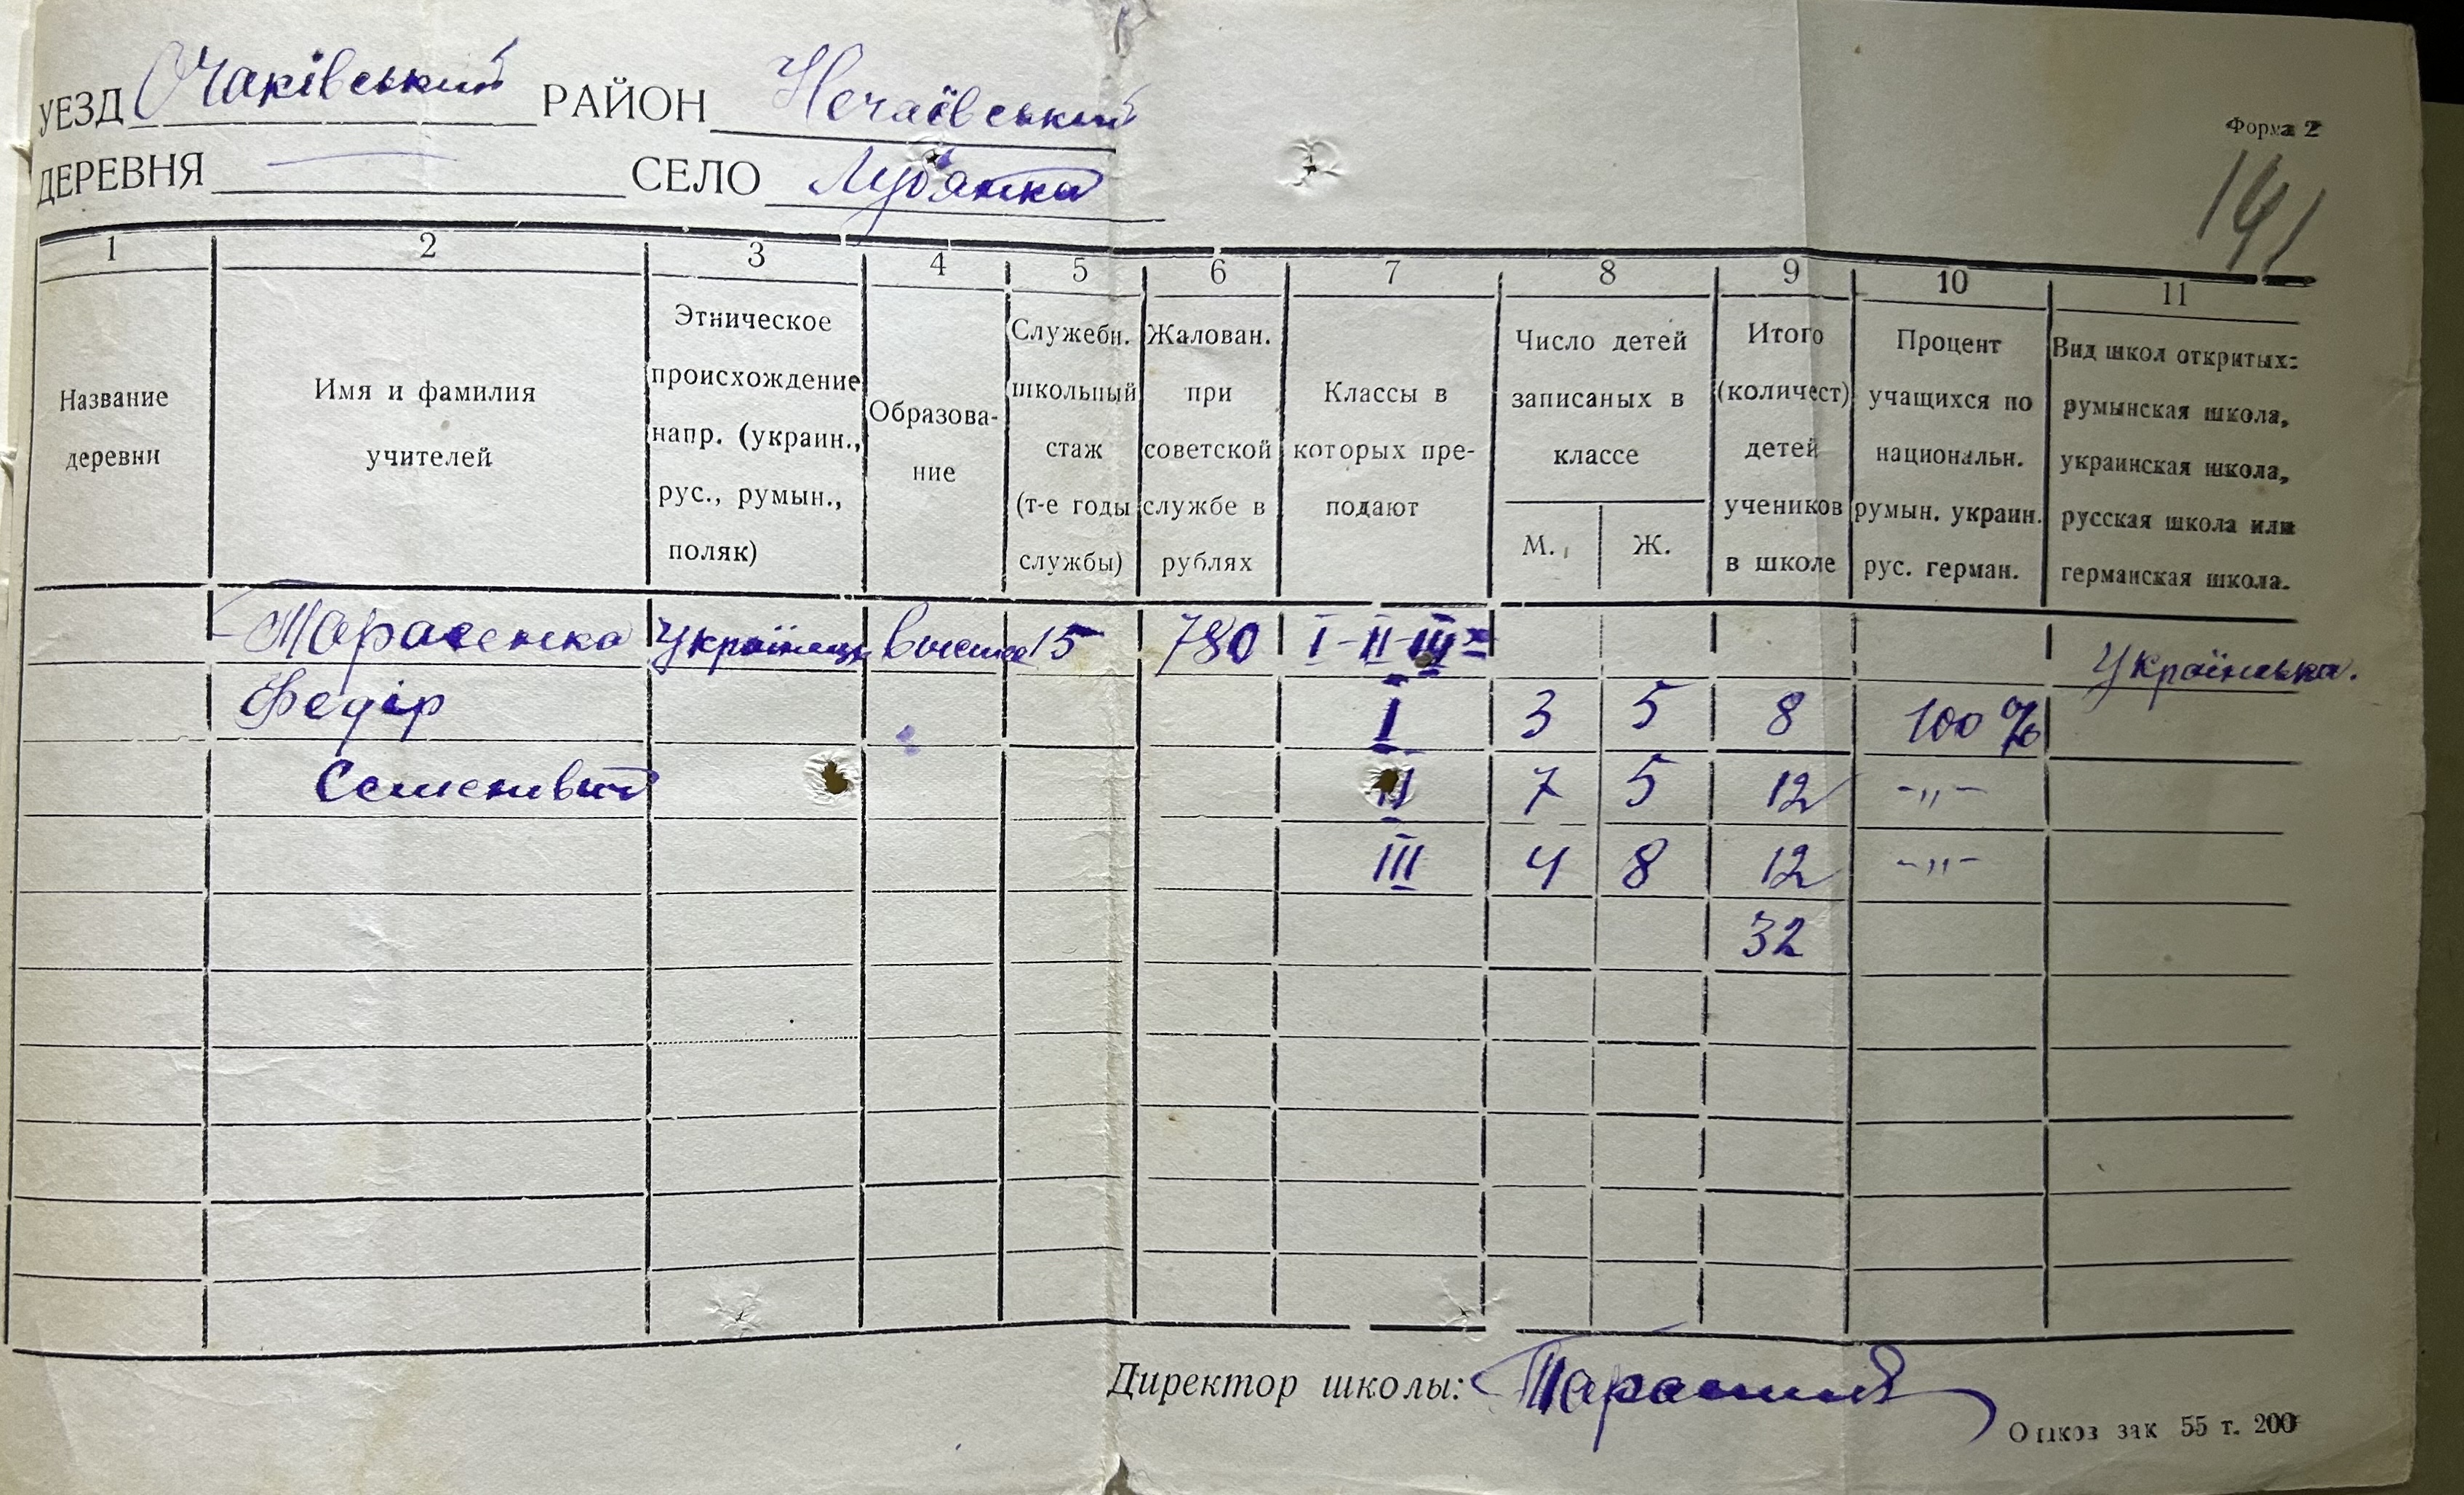 УЕЗД Очаківський РАЙОН Нечаївський
Форма 2
ДЕРЕВНЯ — СЕЛО Луб'янка
141
1 2 3 4 5 6 7 8 9 10 11
Название
деревни
Имя и фамилия
учителей
Этническое
происхождение
напр. (украин.,
рус., румын.,
поляк)
Образова-
ние
Служебн.
школьный
стаж
(т-е годы
службы)
Жалован.
при
советской
службе в
рублях
Классы в
которых пре-
подают
Число детей
записаных в
классе
М. Ж.
Итого
(количест)
детей
учеников
в школе
Процент
учащихся по
национальн.
румын. украин.
рус. герман.
Вид школ открытых:
румынская школа,
украинская школа,
русская школа или
германская школа.
Тарасенко Українець 15 780 I-II-III-х Українська.
Федір I 3 5 8 100%
Семенович II 7 5 12 -„-
III 4 8 12 -„-
32
Директор школы:
зак 55 т. 200